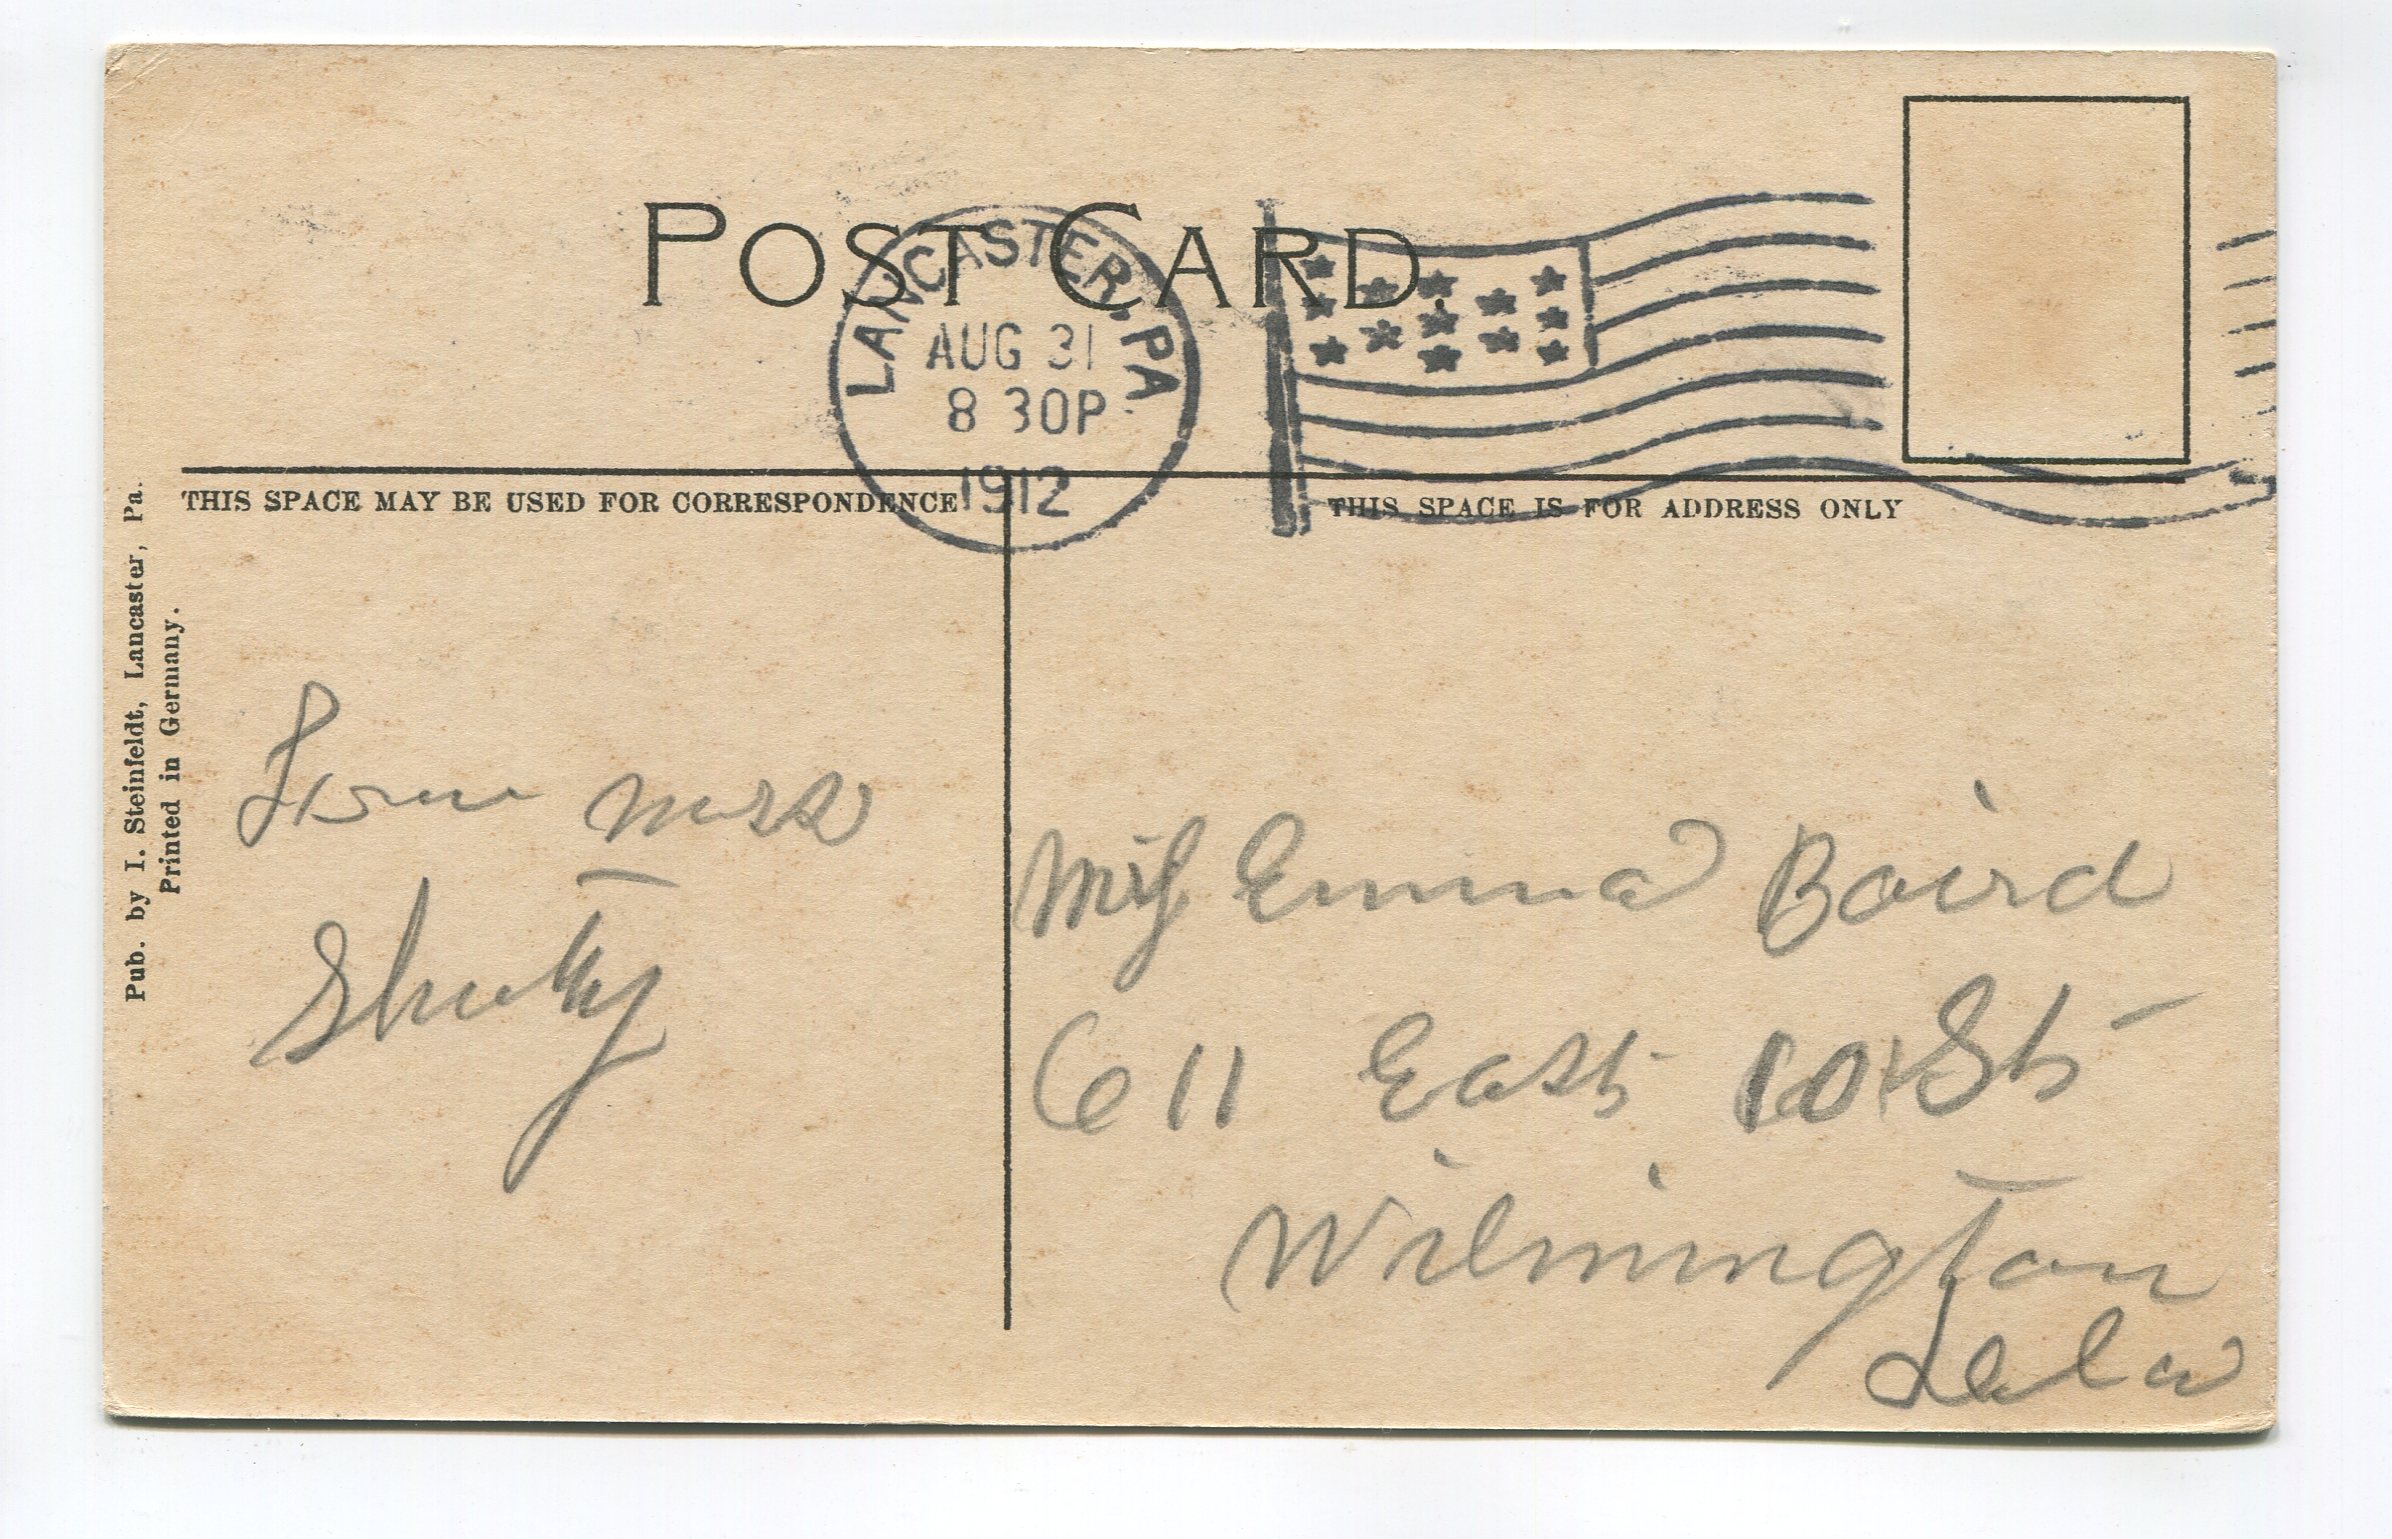 POST CARD.
LANCASTER, PA
AUG 31
8 30P
1912
THIS SPACE MAY BE USED FOR CORRESPONDENCE
THIS SPACE IS FOR ADDRESS ONLY
Pub. by I. Steinfeldt, Lancaster, Pa.
Printed in Germany.
From Mrs
Miss Emma Baird
611 East 10 St
Wilmington
Dela